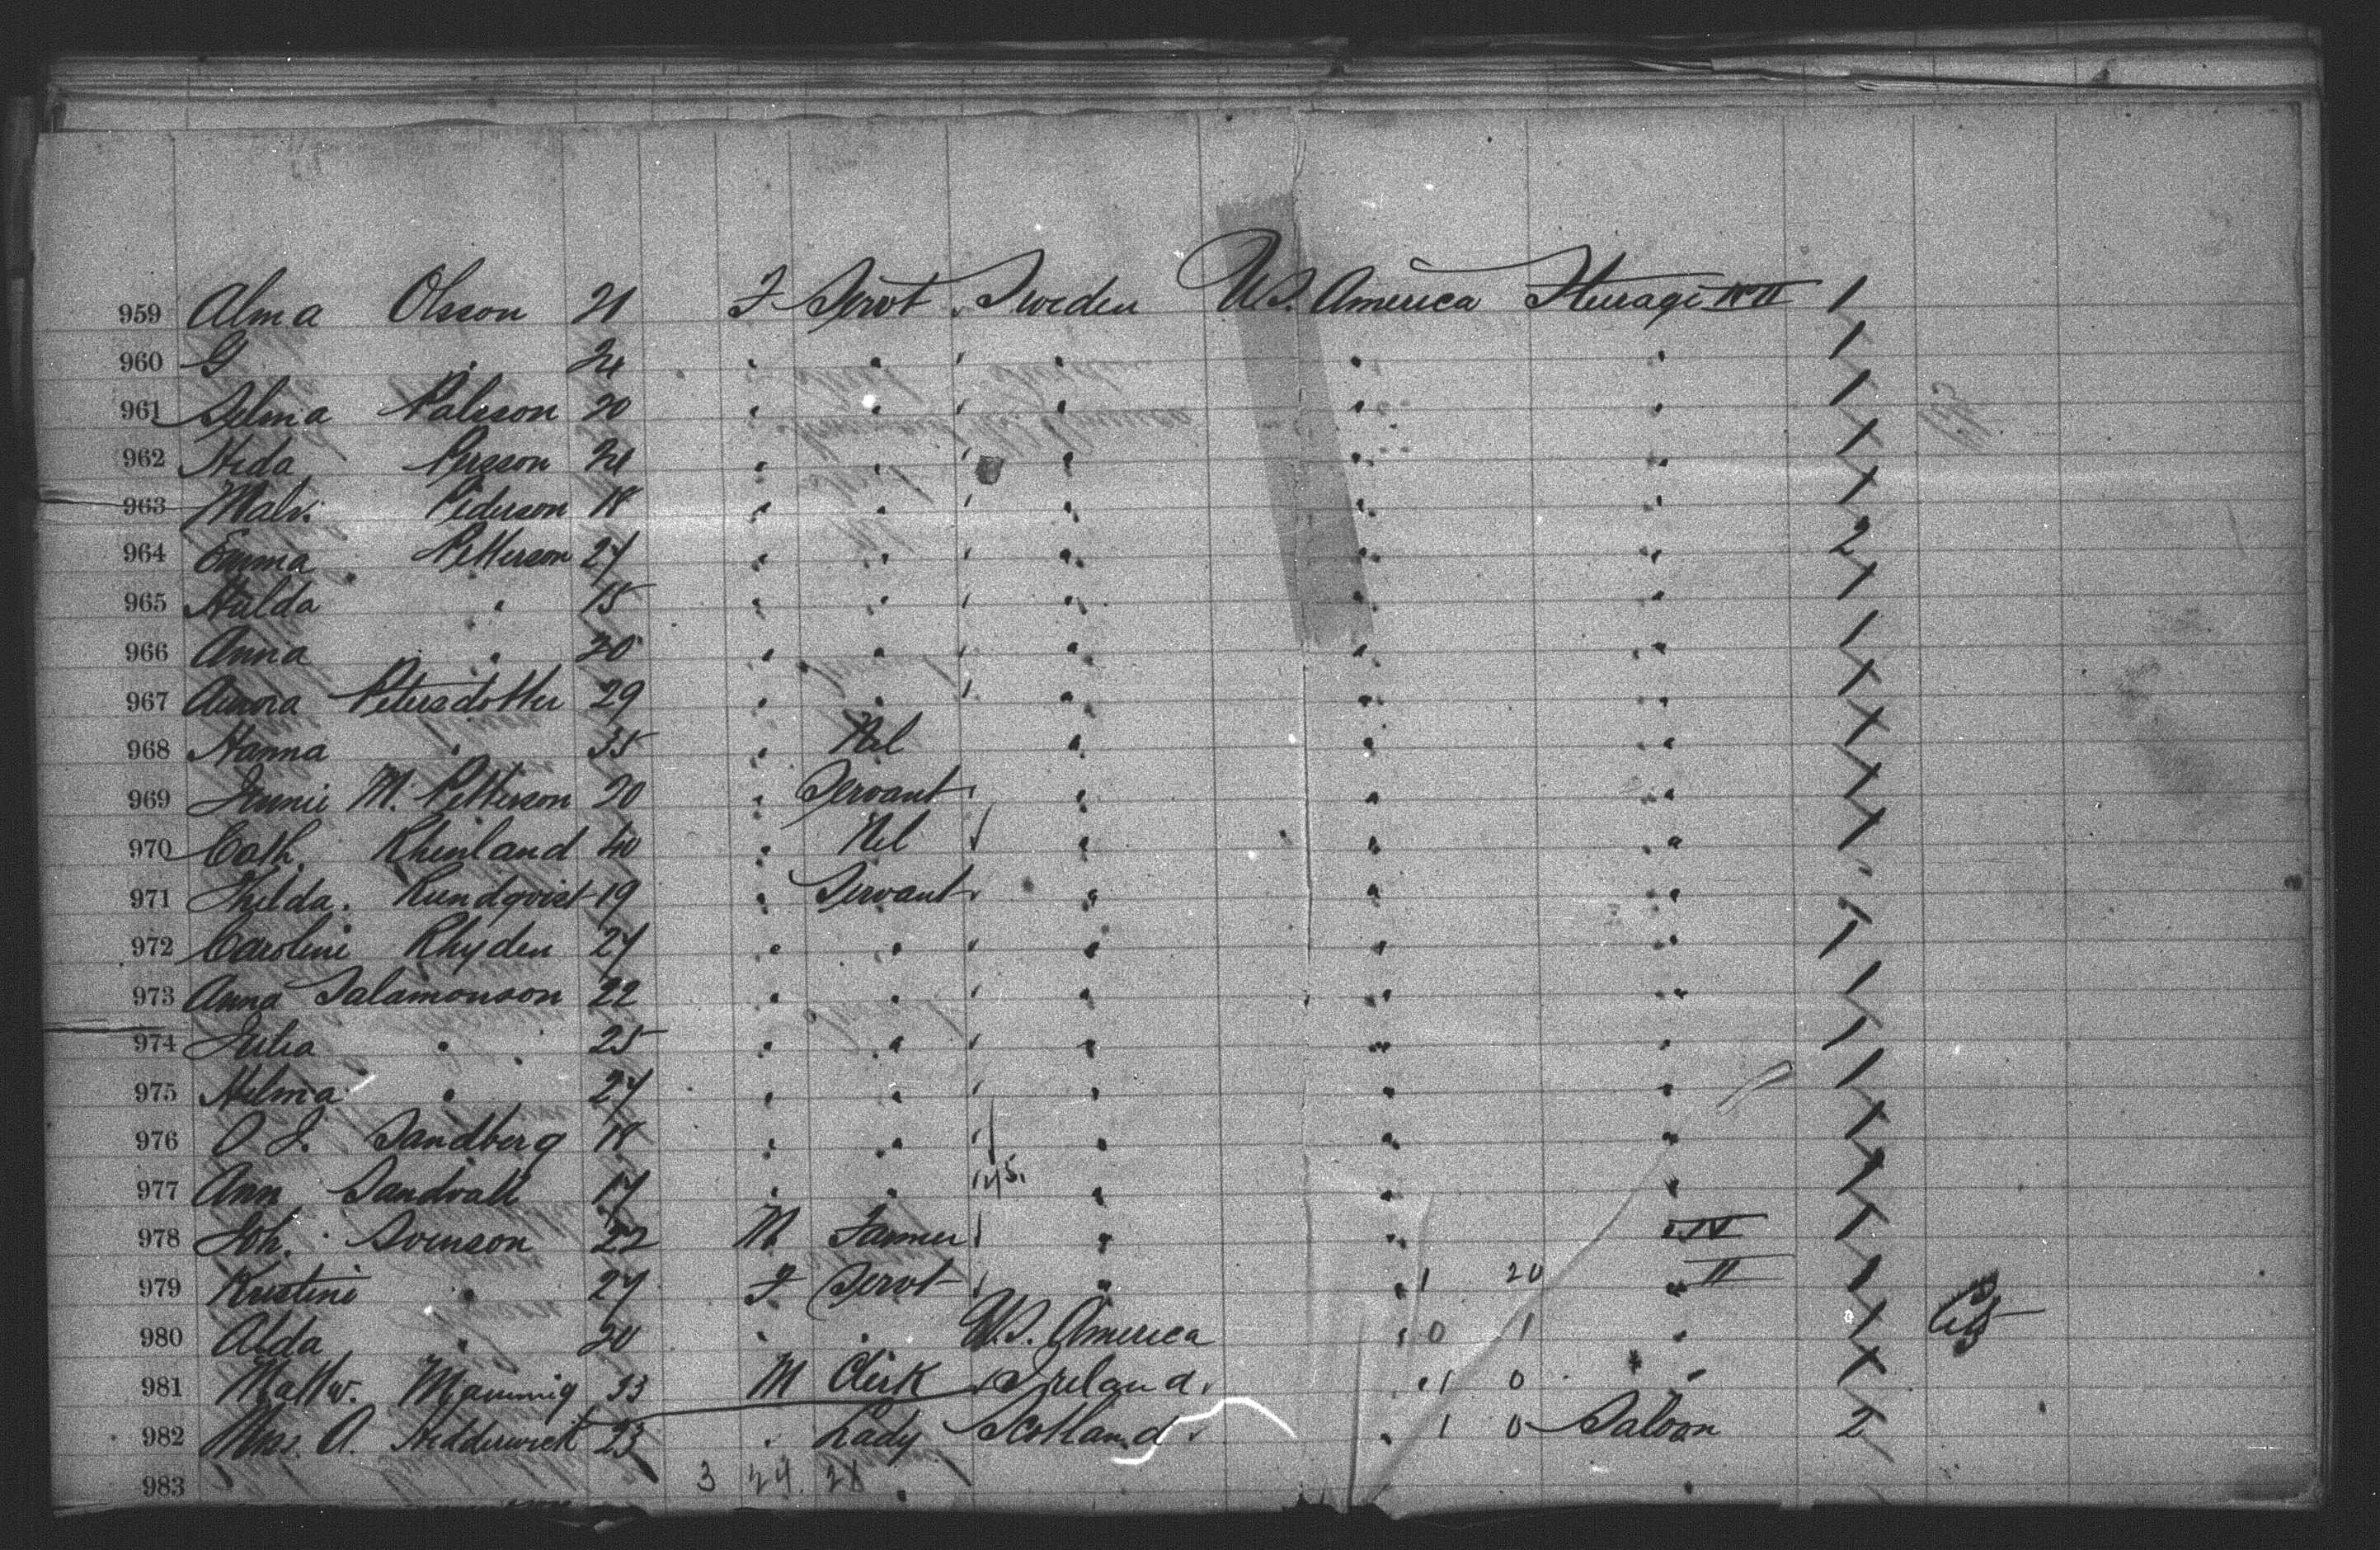 959 Alma Olsson 21 F Servt Sweden U.S. America Steerage No II 1
960 G " 24 " " " " " 1
961 Selma Palsson 20 " " " " " 1
962 Hida Persson 24 " " " " " 1
963 Malv. Pederson 18 " " " " " 1
964 Emma Petterson 27 " " " " " 2
965 Hulda " 15 " " " " " 1
966 Anna " 20 " " " " " 1
967 Aurora Petersdotter 29 " " " " " 1
968 Hanna " 35 " Nil " " " 1
969 Jennie M. Petterson 20 " Servant " " " 1
970 Cath. Rhinland 40 " Nil " " " 1
971 Thilda. Rundqvist 19 " Servant " " "
972 Caroline Rhyden 27 " " " " " 1
973 Anna Salamonson 22 " " " " " 1
974 Julia " 25 " " " " " 1
975 Hilma " 27 " " " " " 1
976 O J. Sandberg 18 " " " " " 1
977 Ann Sandvall 17 " " " " " 1
978 Joh. Svenson 22 M Farmer " " " IV 1
979 Kristine " 27 F Servt " " 1 20 " II 1
980 Alda " 20 " " U.S. America " 0 1 " 1
981 Matthw. Manning 33 M Clerk Ireland. " 1 0 " 1
982 Miss. A. Hedderwick 23 " Lady Scotland. " 1 0 Saloon 2
983 3 24. 21